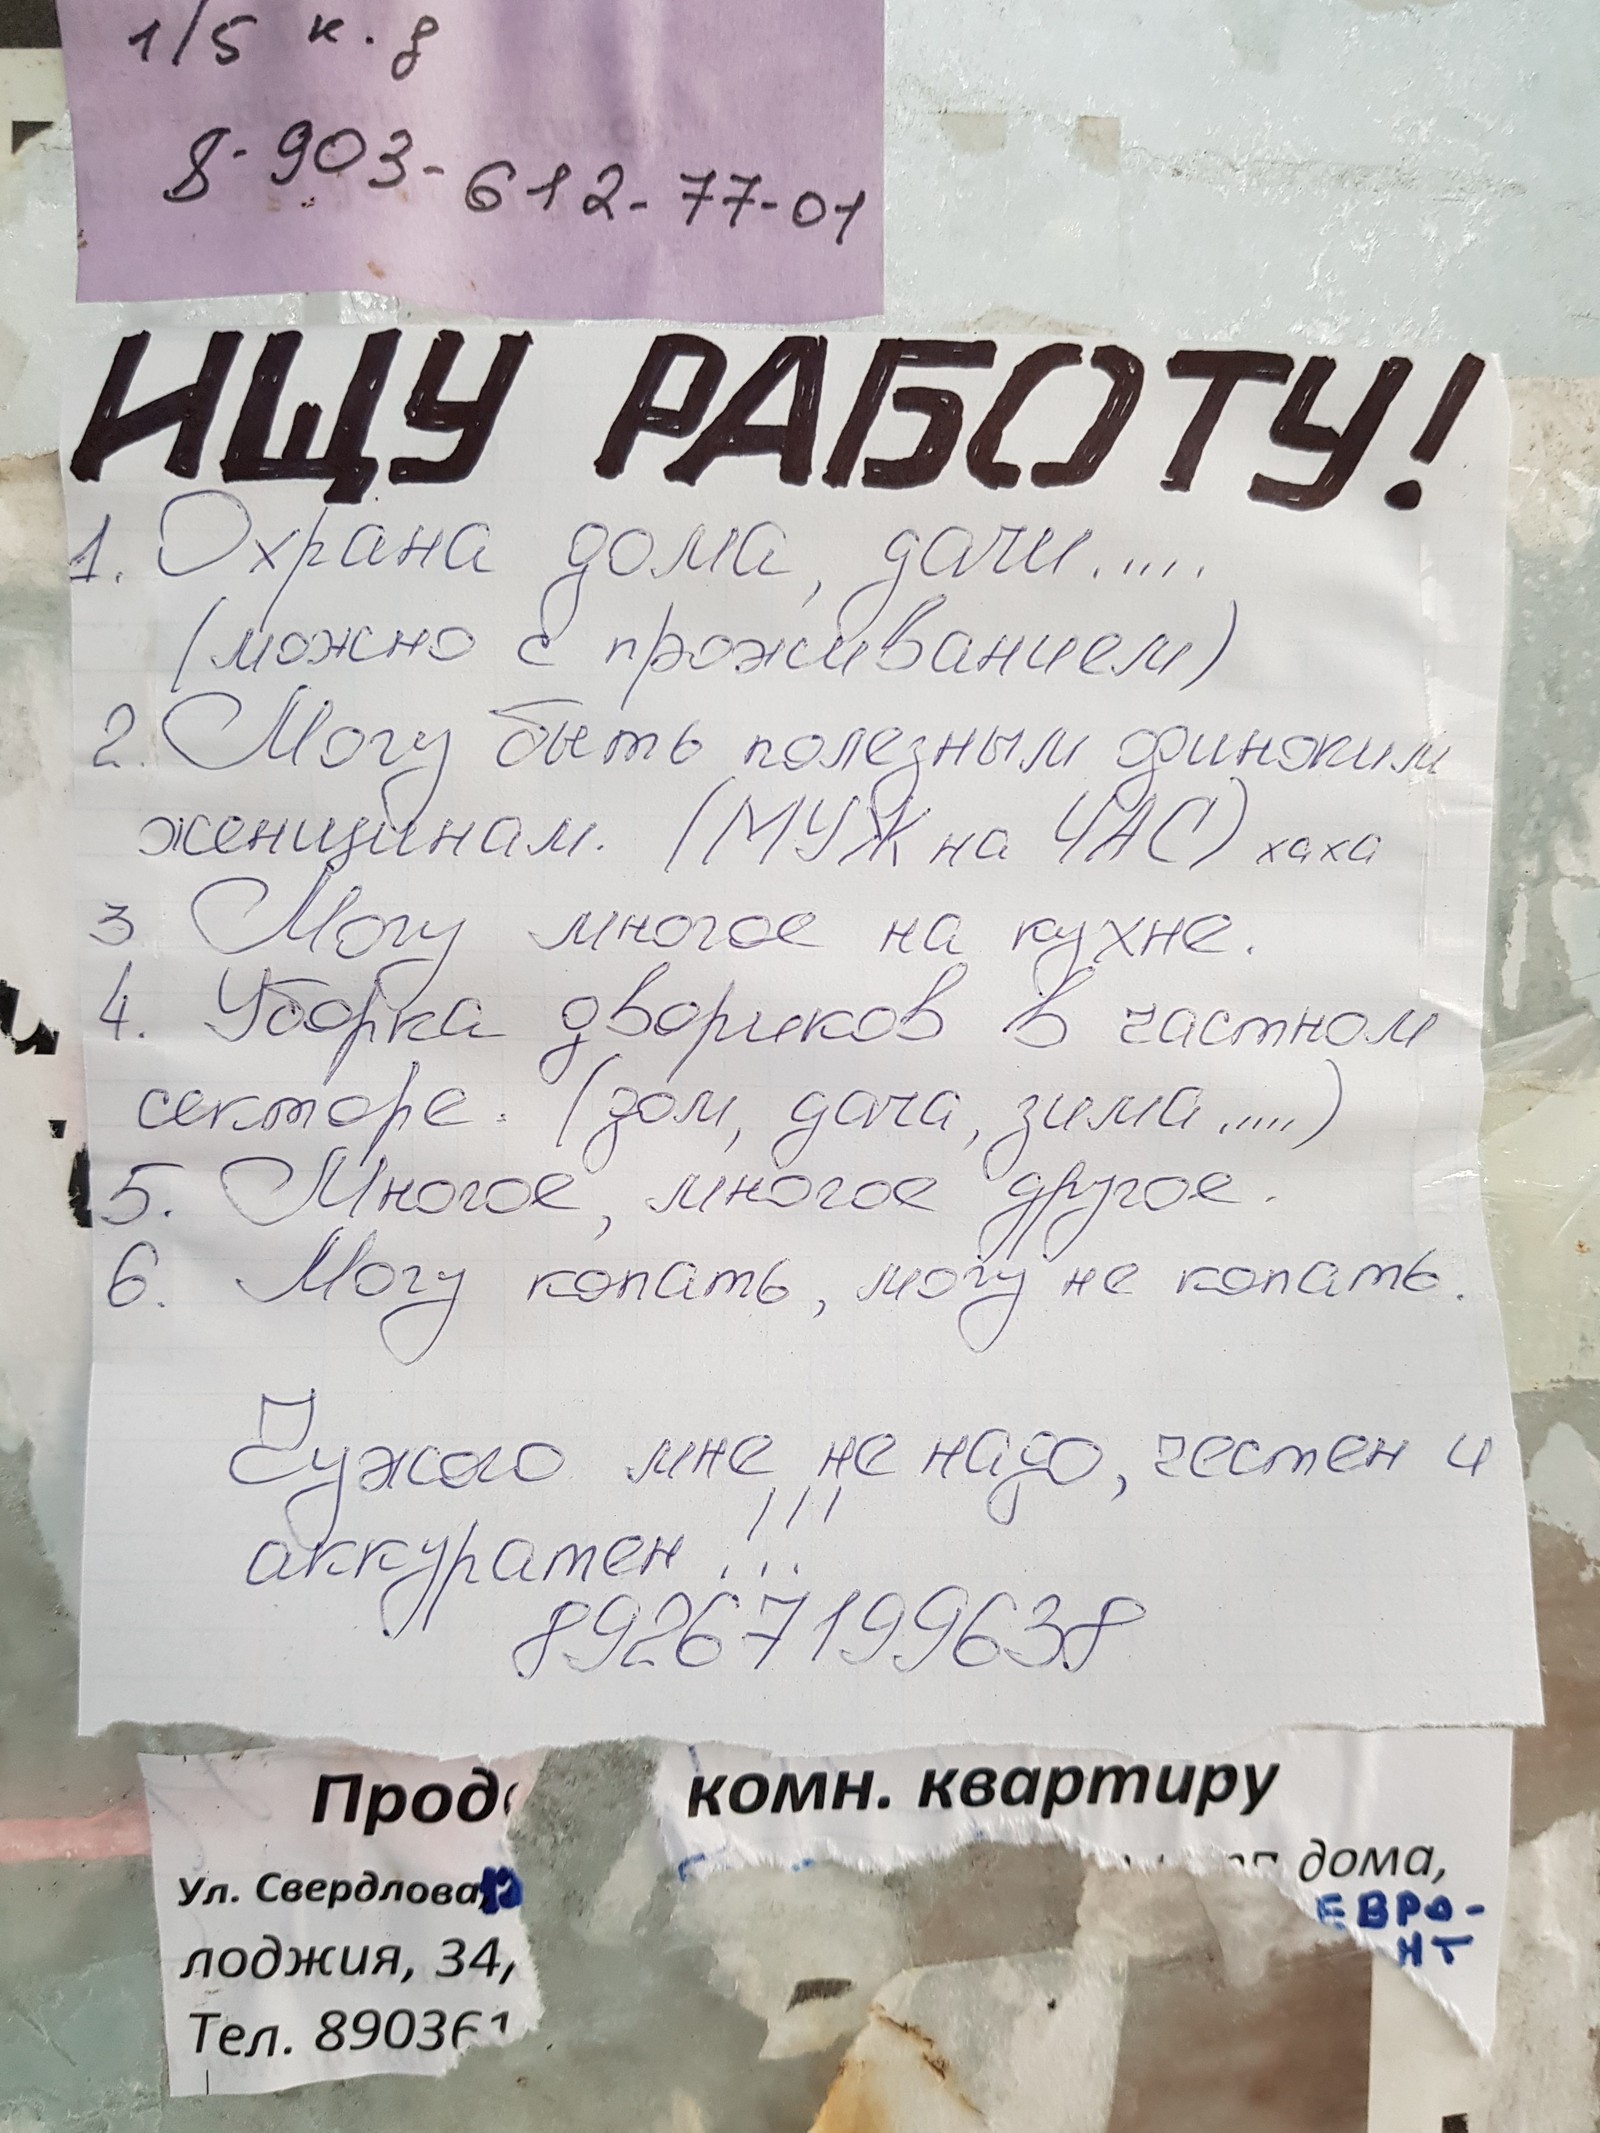 1/5 к. д
8-903-612-77-01
ИЩУ РАБОТУ!
1. Охрана дома, дачи.....
(можно с проживанием)
2. Могу быть полезным одиноким
женщинам. (МУЖ на ЧАС) хаха
3 Могу многое на кухне.
4. Уборка двориков в частном
секторе. (дом, дача, зима.....)
5. Многое, многое другое.
6. Могу копать, могу не копать.
Чужого мне не надо, честен и
аккуратен!!!
89267199638
Прода комн. квартиру
дома,
Ул. Свердлова,
ЕВРО-
НТ
лоджия, 34,
Тел. 890361